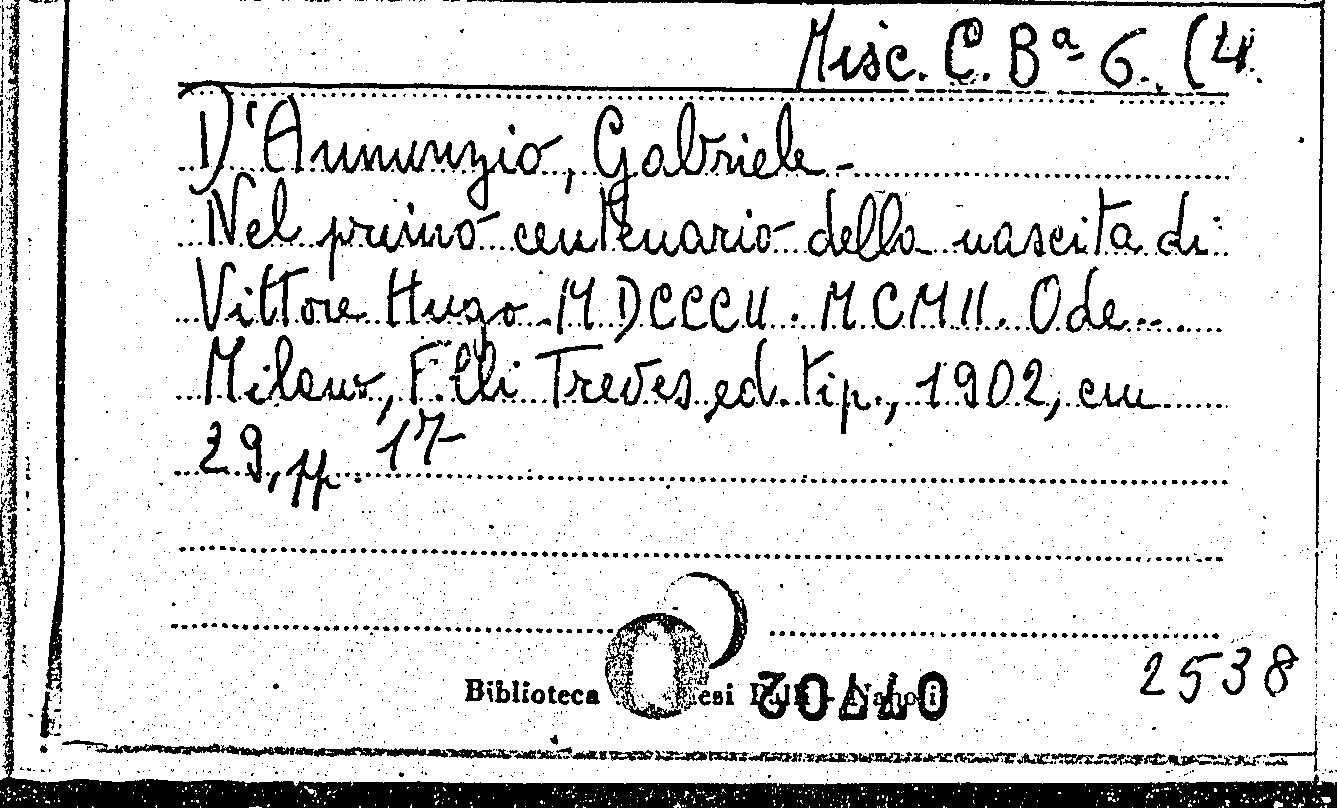 Misc. C. Bª 6. (4.
D'Annunzio, Gabriele -
Nel primo centenario della nascita di
Vittore Hugo. MDCCCII. MCMII. Ode...
Milano, F.lli Treves, ed. tip., 1902, cm
29, pp. 17
Biblioteca
2538